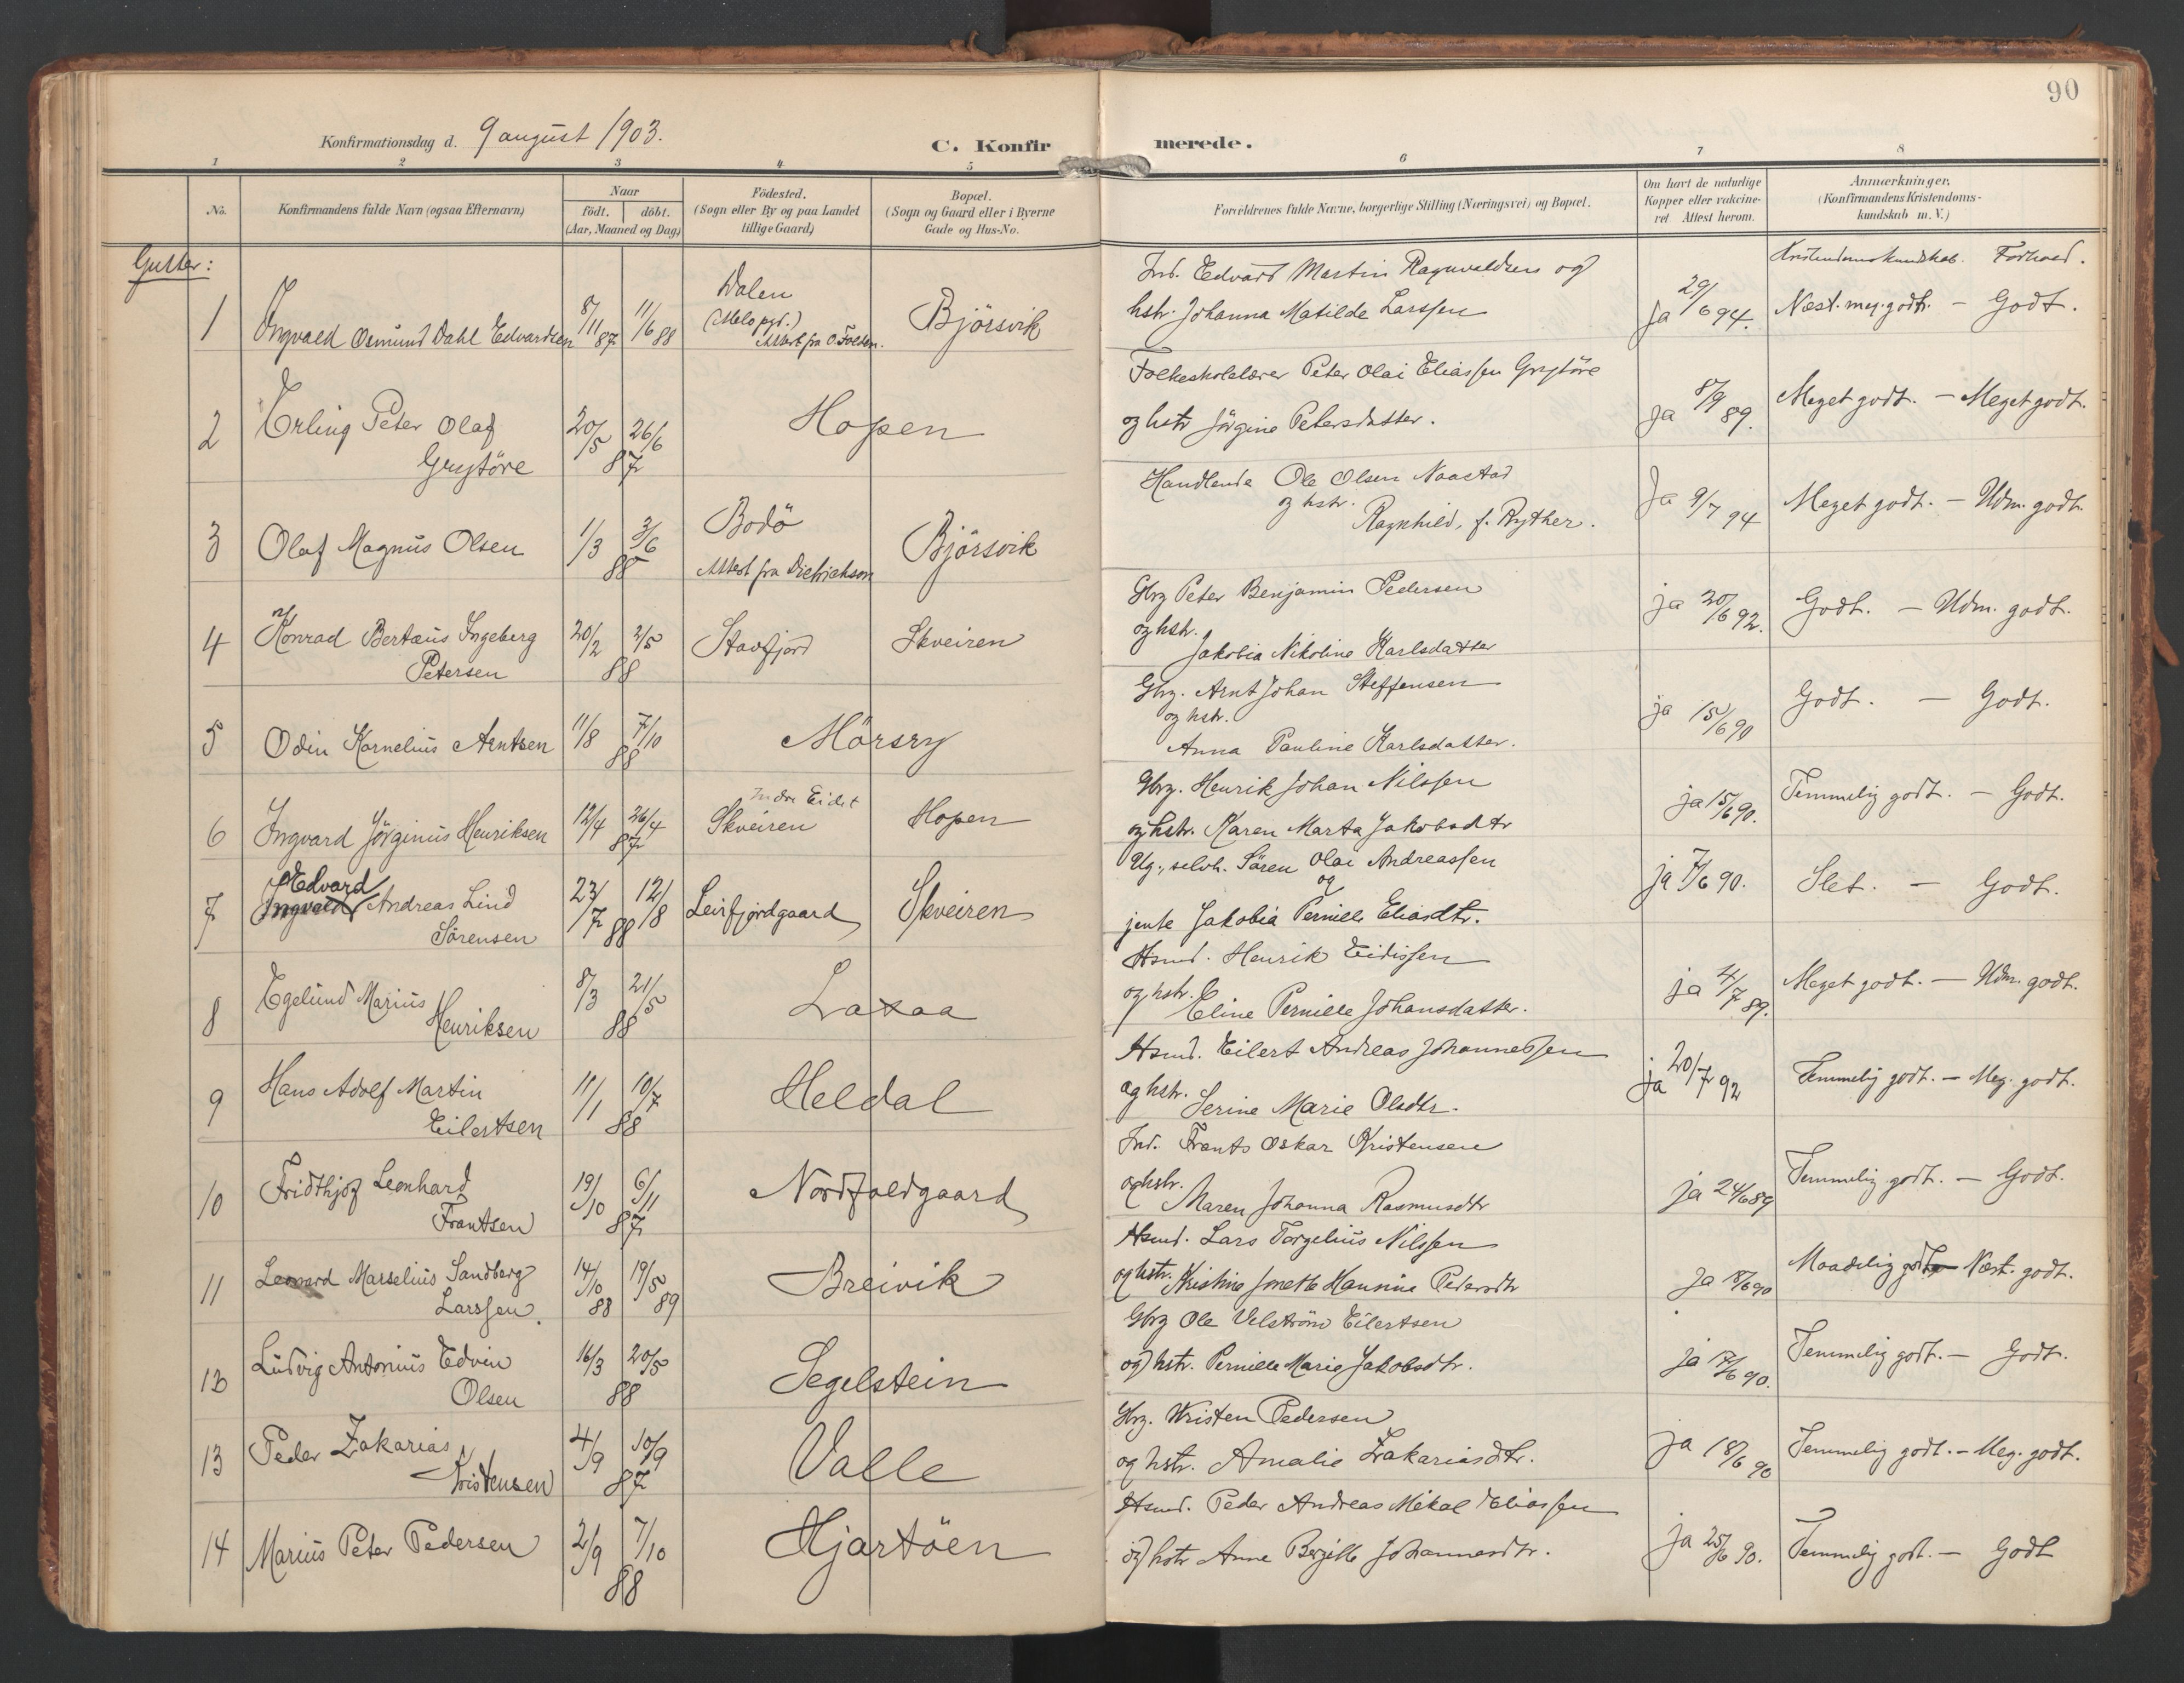 90
Konfirmationsdag d. 9 august 1903.
C. Konfirmerede.
1 2 3 4 5 6 7 8
No.
Konfirmandens fulde Navn (ogsaa Efternavn)
Naar
födt. döbt.
(Aar, Maaned og Dag)
Födested.
(Sogn eller By og paa Landet
tillige Gaard)
Bopæl.
(Sogn og Gaard eller i Byerne
Gade og Hus-No.
Forældrenes fulde Navne, borgerlige Stilling (Næringsvei) og Bopæl.
Om havt de naturlige
Kopper eller vakcine-
ret Attest herom.
Anmærkninger.
(Konfirmandens Kristendoms-
kundskab m. V.)
Gutter:
Kristendomskundskab. Forhold.
1 Ingvald Osmund Dahl Edvardsen 8/11 87 11/6 88
Dalen
(Melo pgd.)
Attest fra O. Folden.
Björsvik
Ind. Edvard Martin Ragnvaldsen og
hstr. Johanna Matilde Larssen
ja 29/6 94. Næst. meg. godt. - Godt.
2 Erling Peter Olaf
Grytöre
20/5 26/6
87
Hopen
Folkeskolelærer Peter Olai Eliassen Grytöre
og hstr Jörgine Petersdatter.
ja 8/9 89. Meget godt. - Meget godt.
3 Olaf Magnus Olsen 1/3 3/6
88
Bodö
Attest fra Dietrichson
Björsvik
Handlende Ole Olsen Naastad
og hstr.
Ragnhild, f. Ryther.
Ja 9/7 94 Meget godt. - Udm. godt.
4 Konrad Bertæus Ingeberg
Petersen
20/2 2/5
88
Stavfjord Skveiren
Gbrg Peter Benjamin Pedersen
og hstr.
Jakobia Nikoline Karlsdatter
ja 20/6 92. Godt. - Udm. godt.
5 Odin Kornelius Arntsen 11/8 7/10
88
Mörsry
Gbrg. Arnt Johan Steffensen
og hstr.
Anna Pauline Karlsdatter.
ja 15/6 90 Godt. - Godt.
6 Ingvard Jörginus Henriksen 12/4 26/4
87
Indre Eidet
Skveiren Hopen
Gbrg. Henrik Johan Nilssen
og hstr. Karen Marta Jakobsdtr
ja 15/6 90. Temmelig godt. - Godt.
7 Edvard
Ingvald Andreas Lind
Sörensen
23/7 12/8
88
Leirfjordgaard Skveiren
Ug., selvh. Sören Olai Andreassen
og
jente Jakobia Pernille Eliasdtr.
ja 7/6 90. Slet. - Godt.
8 Egelund Marius
Henriksen
8/3 21/5
88
Laxaa
Hsmd. Henrik Eidissen
og hstr.
Eline Pernille Johansdatter.
ja 4/7 89. Meget godt. - Udm. godt.
9 Hans Adolf Martin
Eilertsen
11/1 10/7
88
Heldal
Hsmd. Eilert Andreas Johannessen
og hstr.
Serine Marie Olsdtr.
ja 20/7 92 Temmelig godt. - Meg. godt.
10 Fridthjof Leonhard
Frantsen
19/10 6/11
87
Nordfoldgaard
Ind. Frants Oskar Kristensen
og hstr.
Maren Johanna Rasmusdtr
ja 24/6 89 Temmelig godt. - Godt.
11 Leonard Marselius Sandberg
Larssen.
14/10 88 19/5 89
Breivik
Hsmd. Lars Torgelius Nilssen
og hstr. Kristine Jonette Hansine Pedersdtr
Ja 18/6 90 Maadelig godt - Næst. godt.
12 Ludvig Antonius Edvin
Olsen
16/3 20/5
88
Segelstein
Gbrg Ole Velström Eilertsen
og hstr. Pernille Marie Jakobsdtr.
ja 17/6 90. Temmelig godt. - Godt.
13 Peder Zakarias
Kristensen
4/9 10/9
87
Valle
Gbrg. Kristen Pedersen
og hstr. Amalie Zakariasdtr.
ja 18/6 90 Temmelig godt. - Meg. godt.
14 Marius Peter Pedersen 2/9 7/10
88
Hjartöen
Hsmd. Peder Andreas Mikal Eliassen
og hstr Anne Bergitte Johannesdtr.
ja 25/6 90. Temmelig godt. - Godt